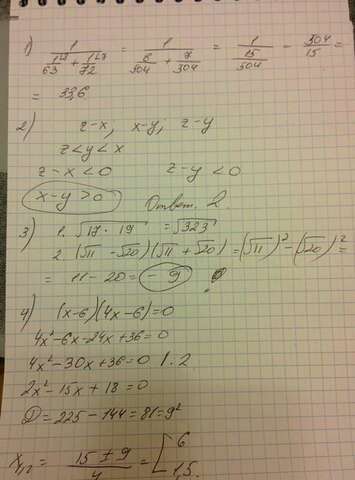 1) 1 / (1^\8/63 + 1^\7/72) = 1 / (8/504 + 7/504) = 1 / (15/504) = 504/15 =
= 33,6
2) z-x; x-y; z-y
z<y<x
z-x<0 z-y<0
x-y>0 Ответ. 2.
3) 1. √17 · √19 = √323
2 (√11 - √20)(√11 + √20) = (√11)² - (√20)² =
= 11 - 20 = -9
4) (x-6)(4x-6)=0
4x²-6x-24x+36=0
4x²-30x+36=0 |:2
2x²-15x+18=0
D=225-144=81=9²
x₁/₂ = (15 ± 9)/4 = [6
1,5.